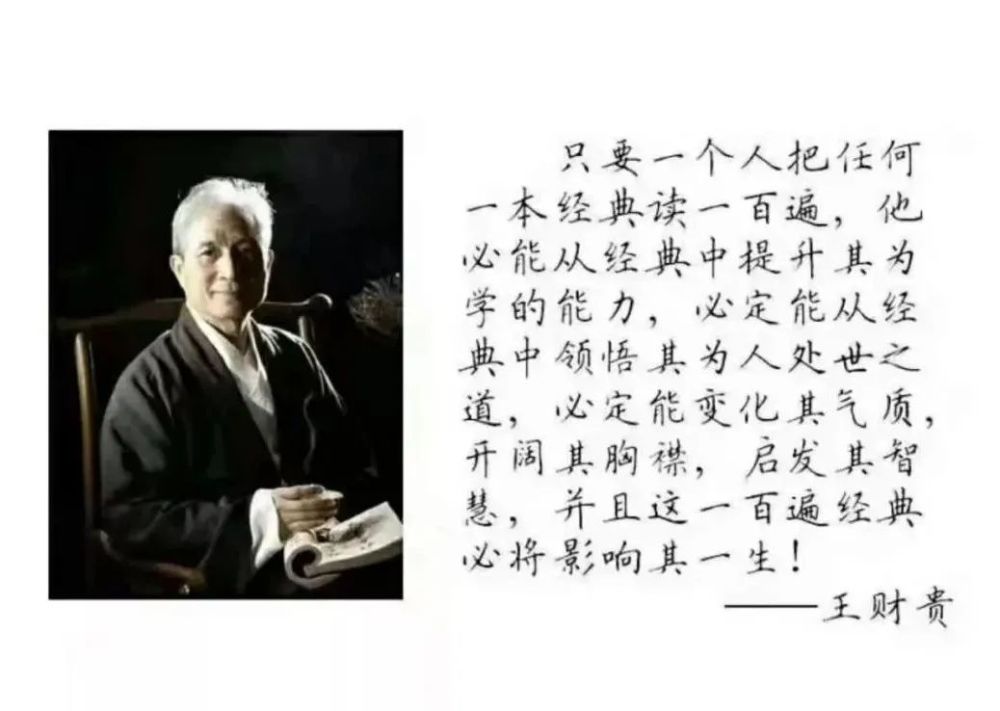 只要一个人把任何
一本经典读一百遍，他
必能从经典中提升其为
学的能力，必定能从经
典中领悟其为人处世之
道，必定能变化其气质，
开阔其胸襟，启发其智
慧，并且这一百遍经典
必将影响其一生！
——王财贵